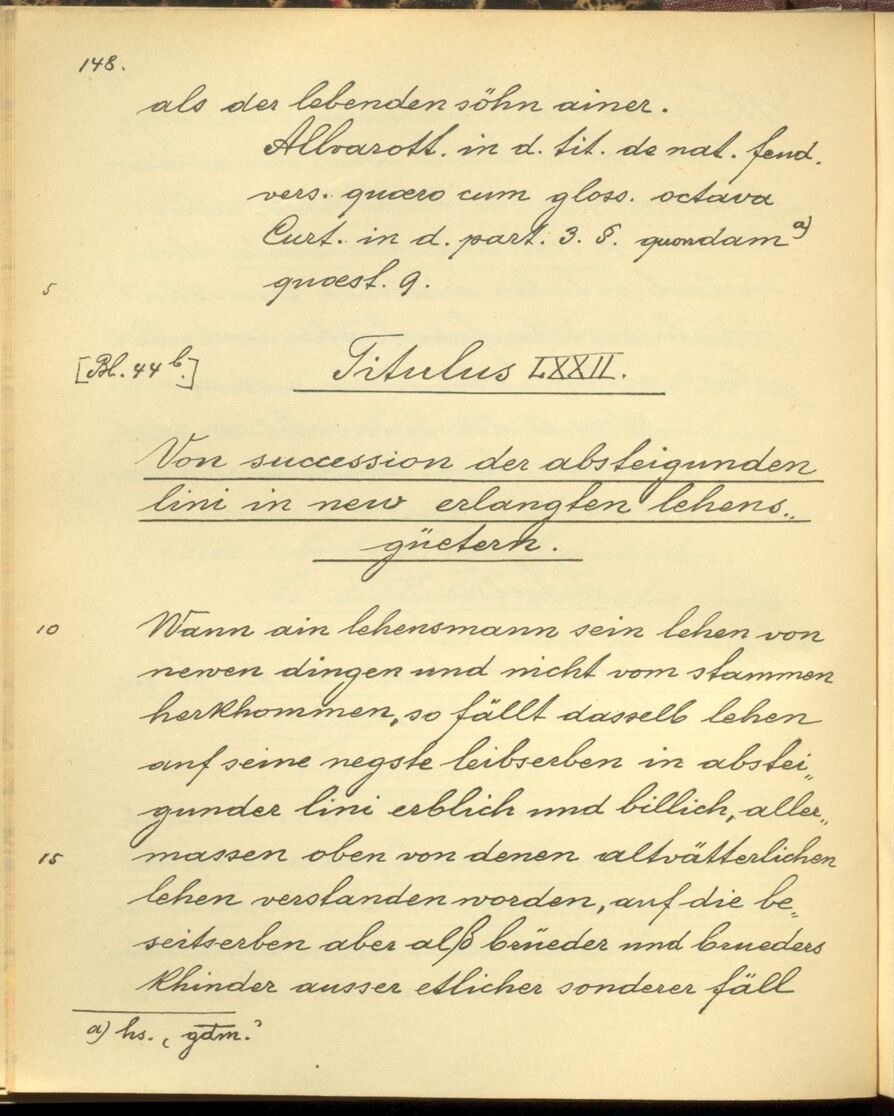 148.
als der lebenden söhn ainer.
Allvarott. in d. tit. de nat. feud.
vers. quæro cum gloss. octava
Curt. in d. part. 3. §. quondam a)
5 quæst. 9.
[Bl. 44 b.] Titulus LXXII.
Von succession der absteigunden
lini in new erlangten lehens„
güetern.
10 Wann ain lehensmann sein lehen von
newen dingen und nicht vom stammen
herkhommen, so fällt dasselb lehen
auf seine negste leibserben in abstei„
gunder lini erblich und billich, aller„
15 massen oben von denen altvätterlichen
lehen verstanden worden, auf die be„
seitserben aber alß brüeder und brueders
khinder ausser etlicher sonderer fäll
a) hs. „gdm.“